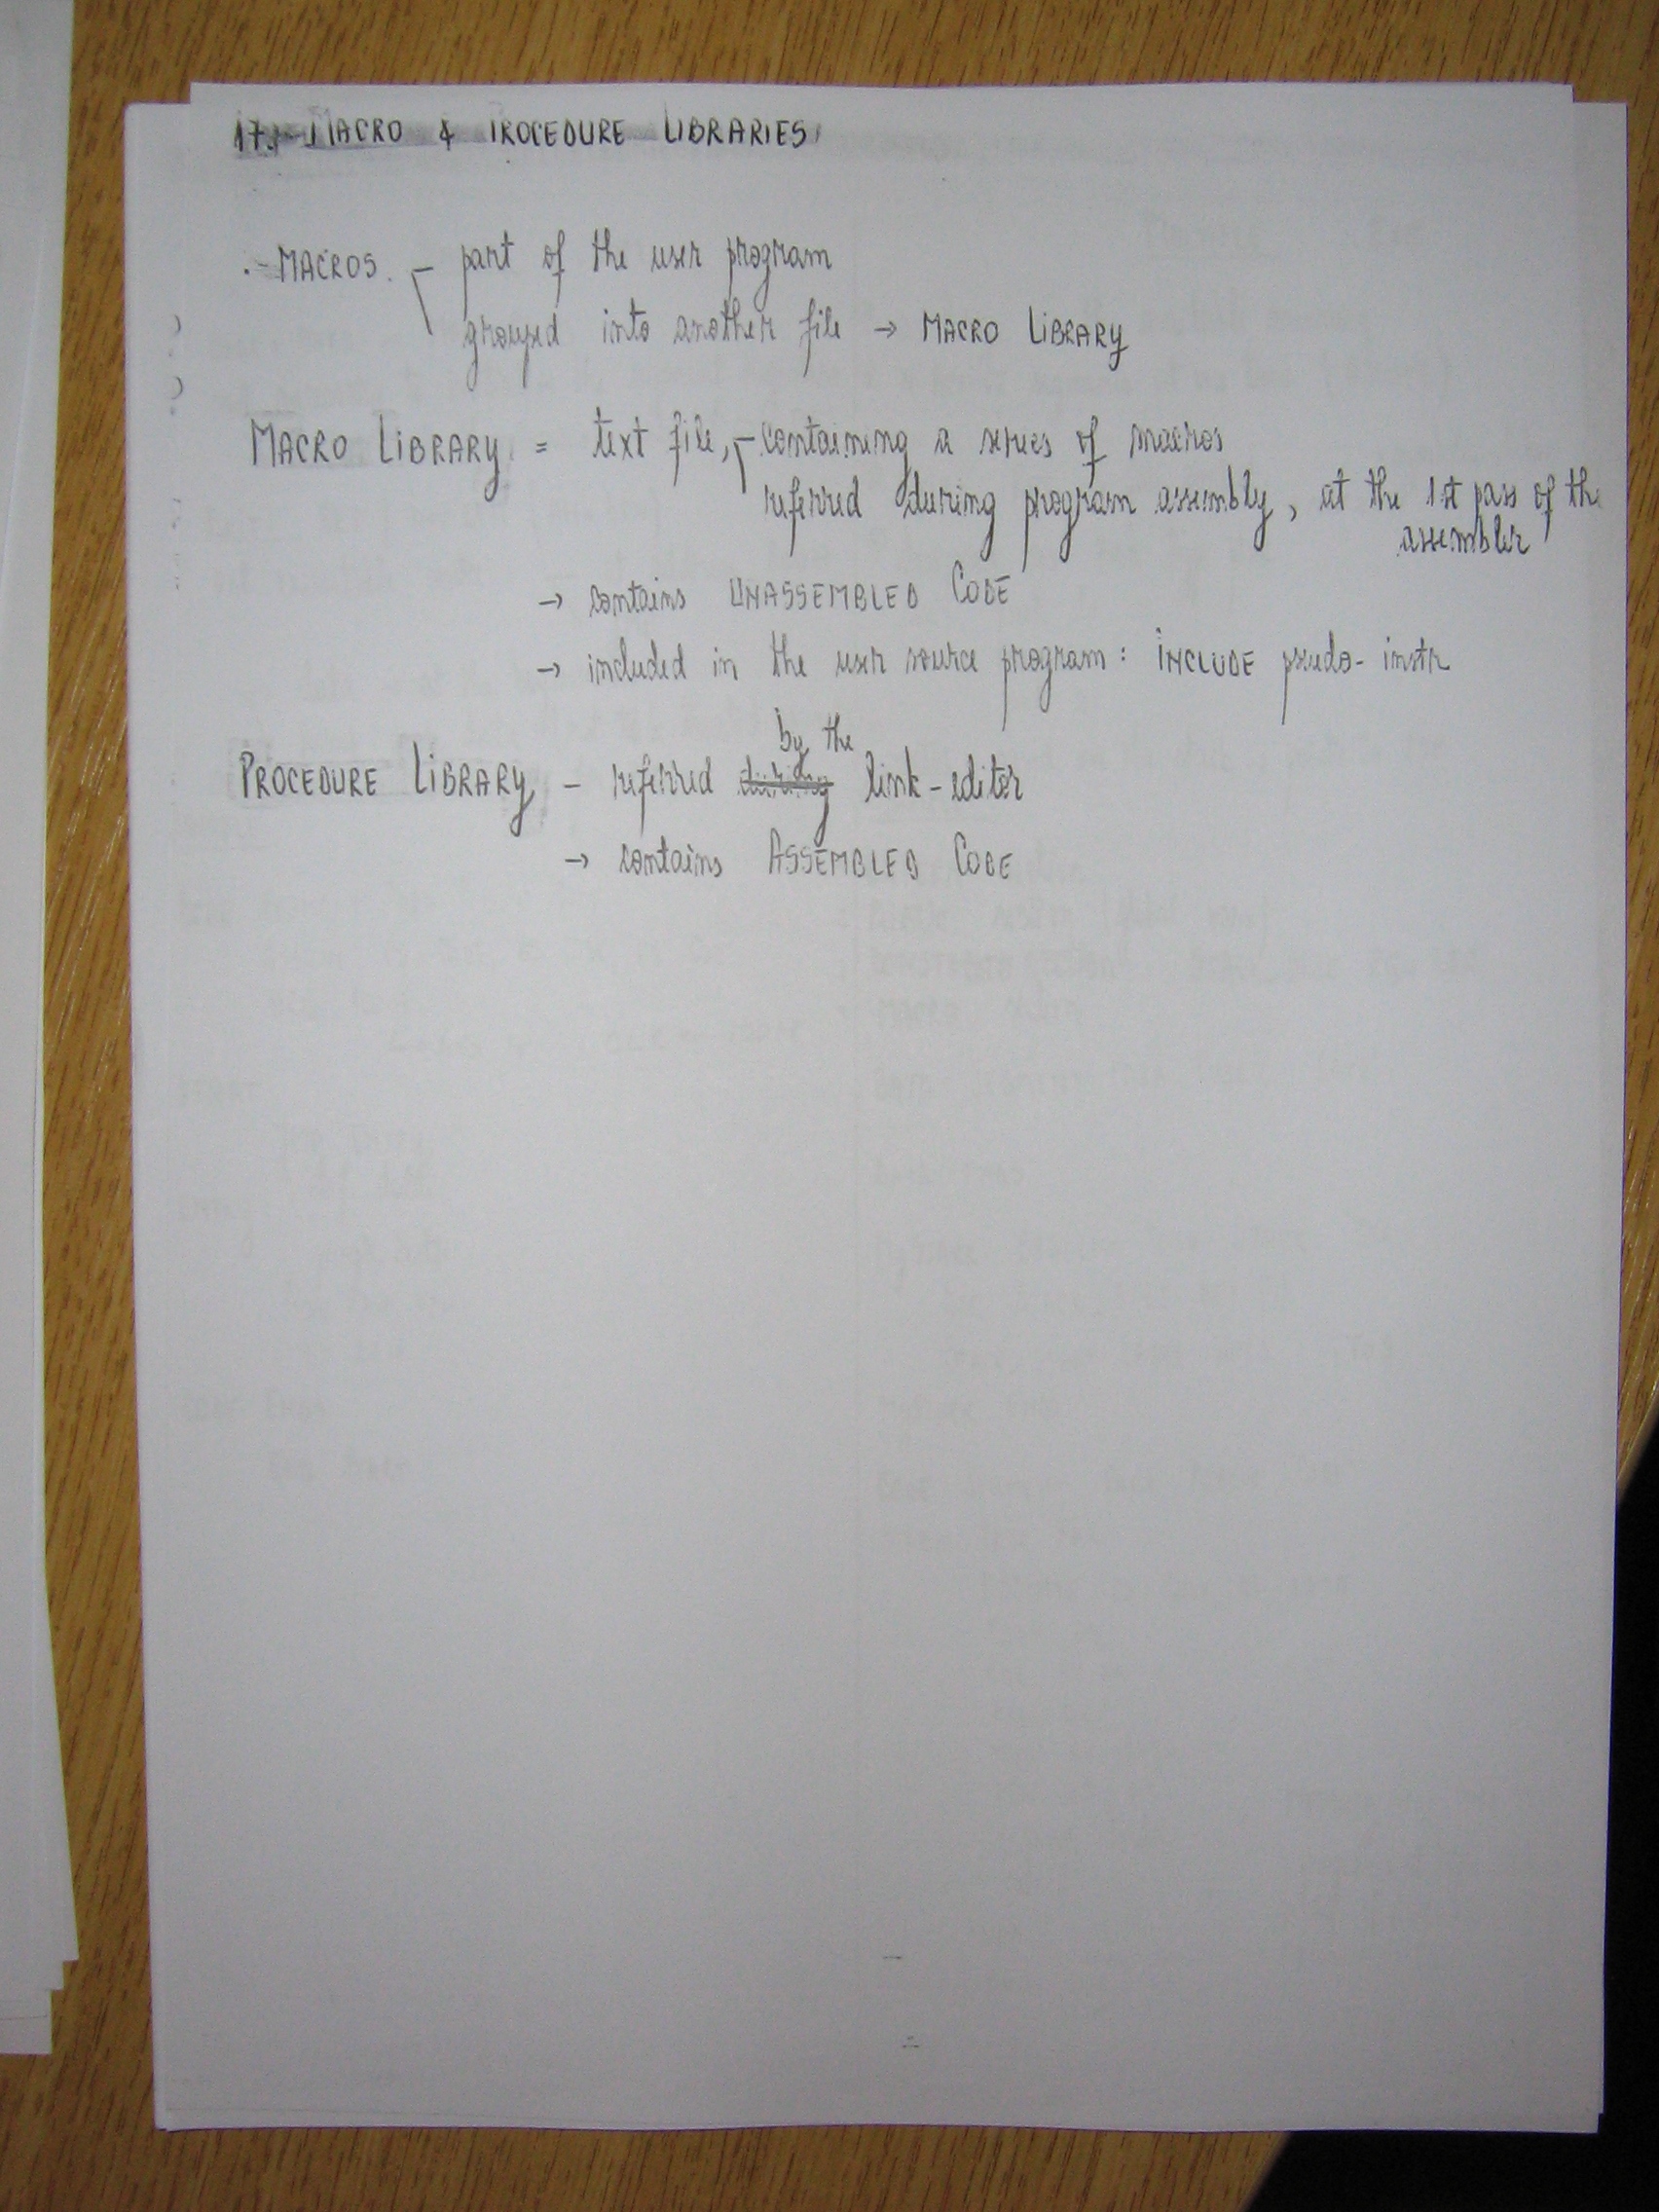 17. MACRO & PROCEDURE LIBRARIES
- MACROS - part of the user program
grouped into another file → MACRO LIBRARY
MACRO LIBRARY = text file, - containing a series of macros
referred during program assembly, at the 1st pass of the
assembler
→ contains UNASSEMBLED CODE
→ included in the user source program: INCLUDE pseudo-instr
by the
PROCEDURE LIBRARY - referred during link-editor
→ contains ASSEMBLED CODE